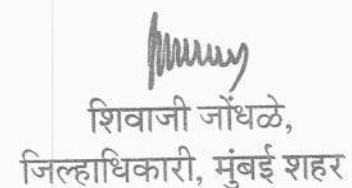 शिवाजी जोंधळे,
जिल्हाधिकारी, मुंबई शहर